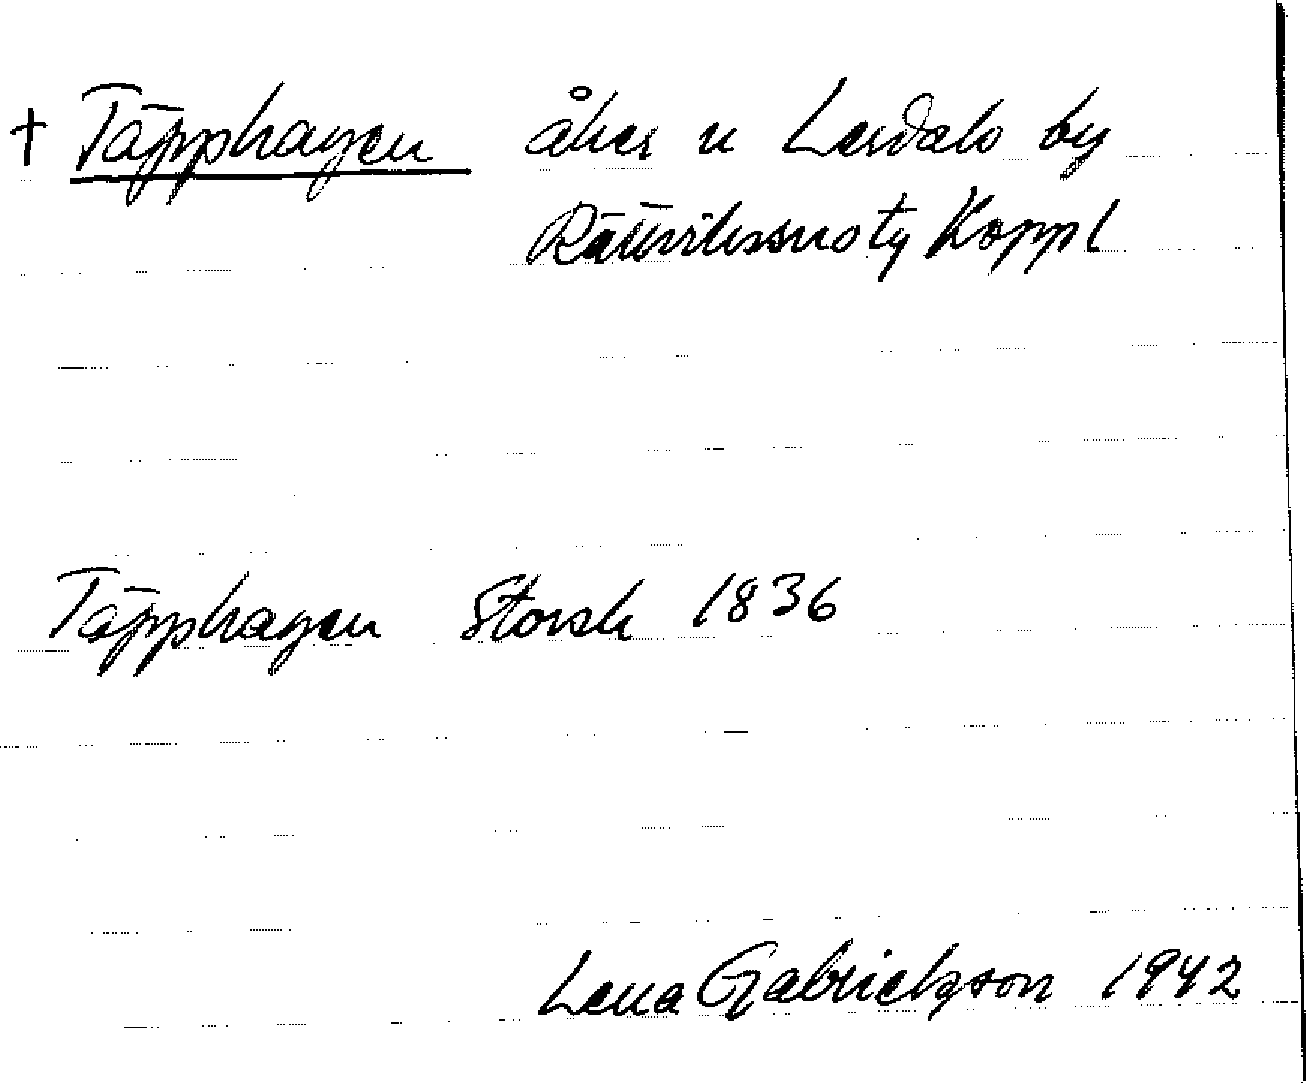 † Täpphagen åker u Lerdals by
Rättviks sn o tg Koppl
Täpphagen Storsk 1836
Lena Gabrielsson 1942